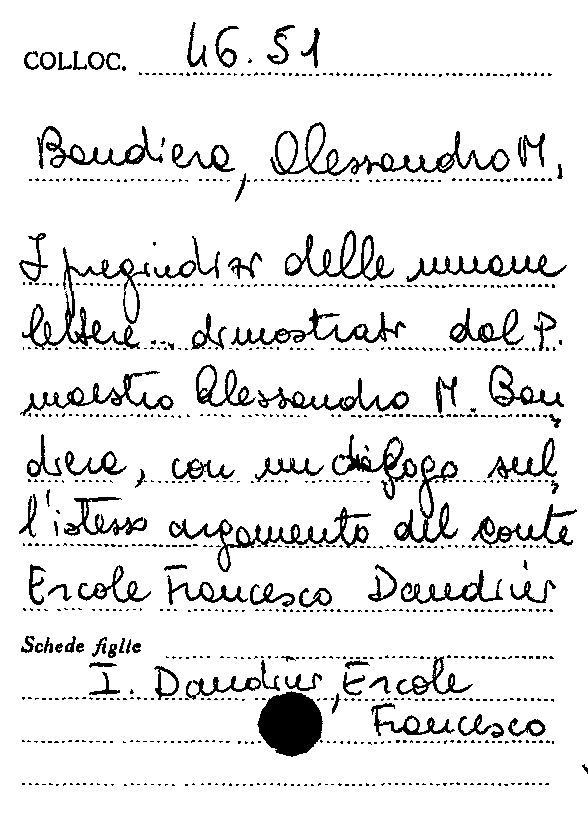 COLLOC. 46.51
Bandiera, Alessandro M.
I pregiudizi delle umane
lettere... dimostrati dal P.
maestro Alessandro M. Ban
diera, con un dialogo sul
l'istesso argomento del conte
Ercole Francesco Dandini
Schede figlie
I. Dandini, Ercole
Francesco